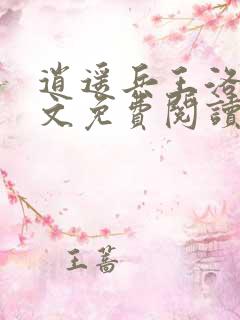 逍遥兵王洛
文免費閱讀
王蒿